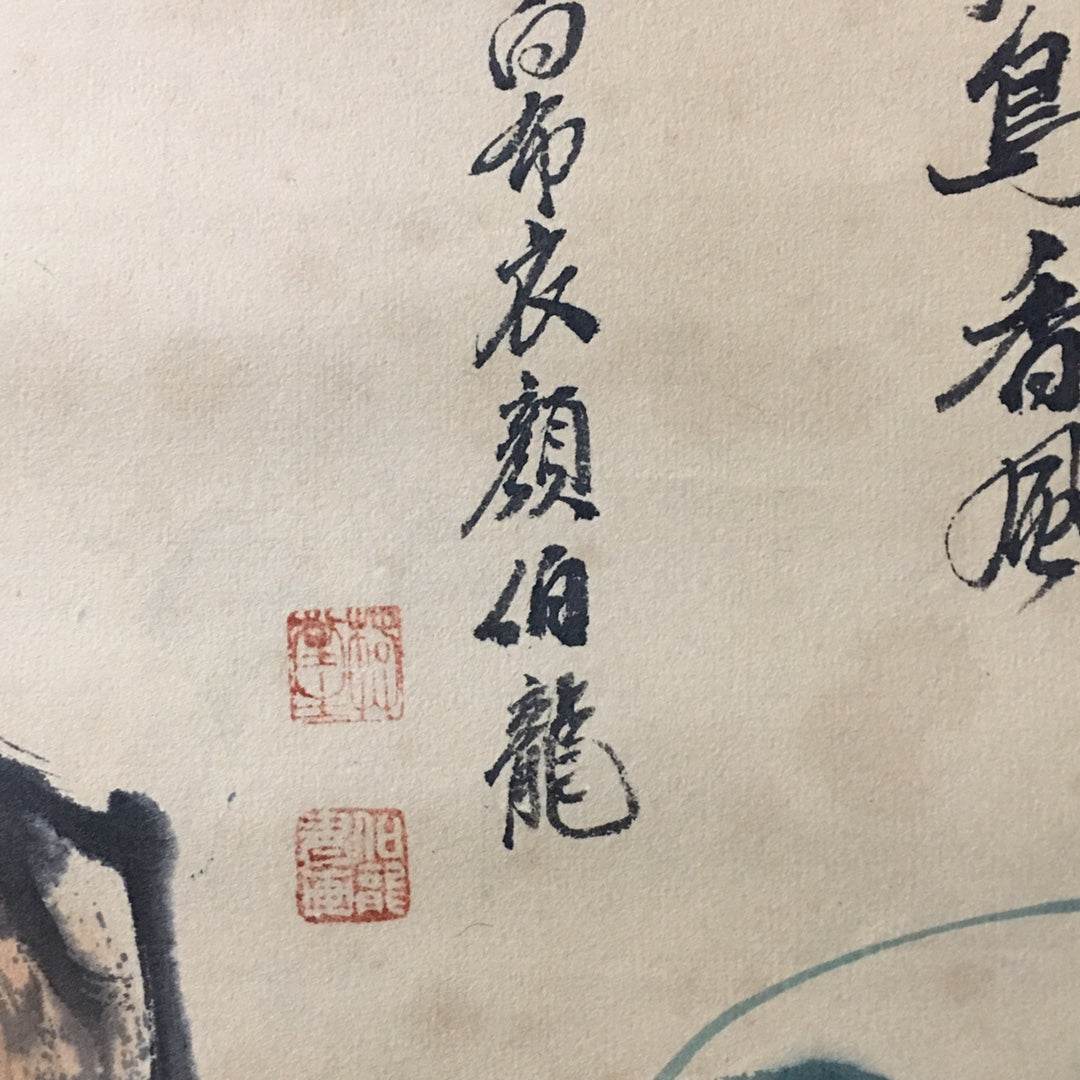 香風
白布衣顏伯龍
伯龍書畫